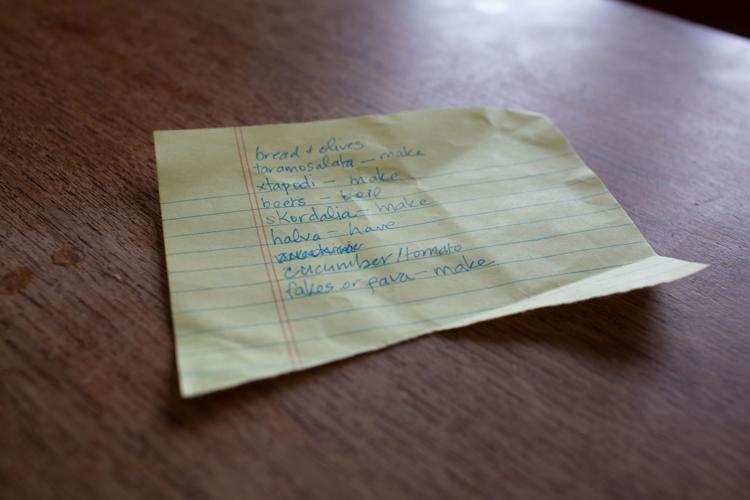 bread + olives
taramosalata — make
xtapodi — make
beets — boil
skordalia — make
halva — have
cucumber/tomato
fakes or fava — make